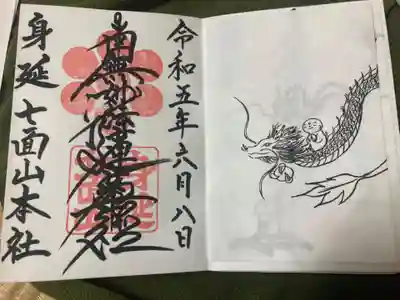 令和五年六月八日
南無妙法蓮華経
身延七面山本社